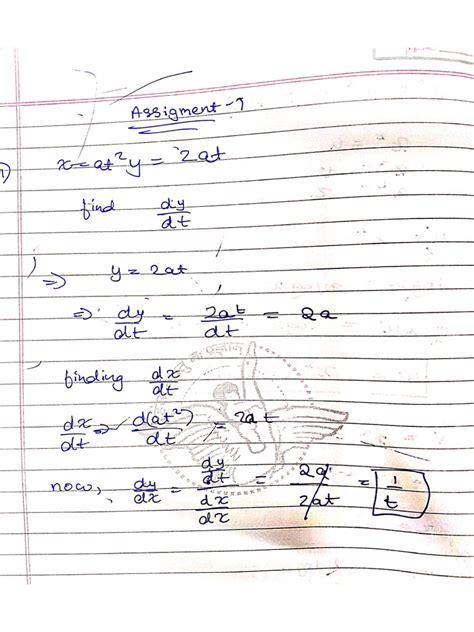 Assigment-7
1) x=at² y = 2at
find dy/dt
=> y = 2at
=> dy/dt = 2at/dt = 2a
finding dx/dt
dx/dt => d(at²)/dt = 2at
now, dy/dx = (dy/dt)/(dx/dx) = 2a/2at = 1/t